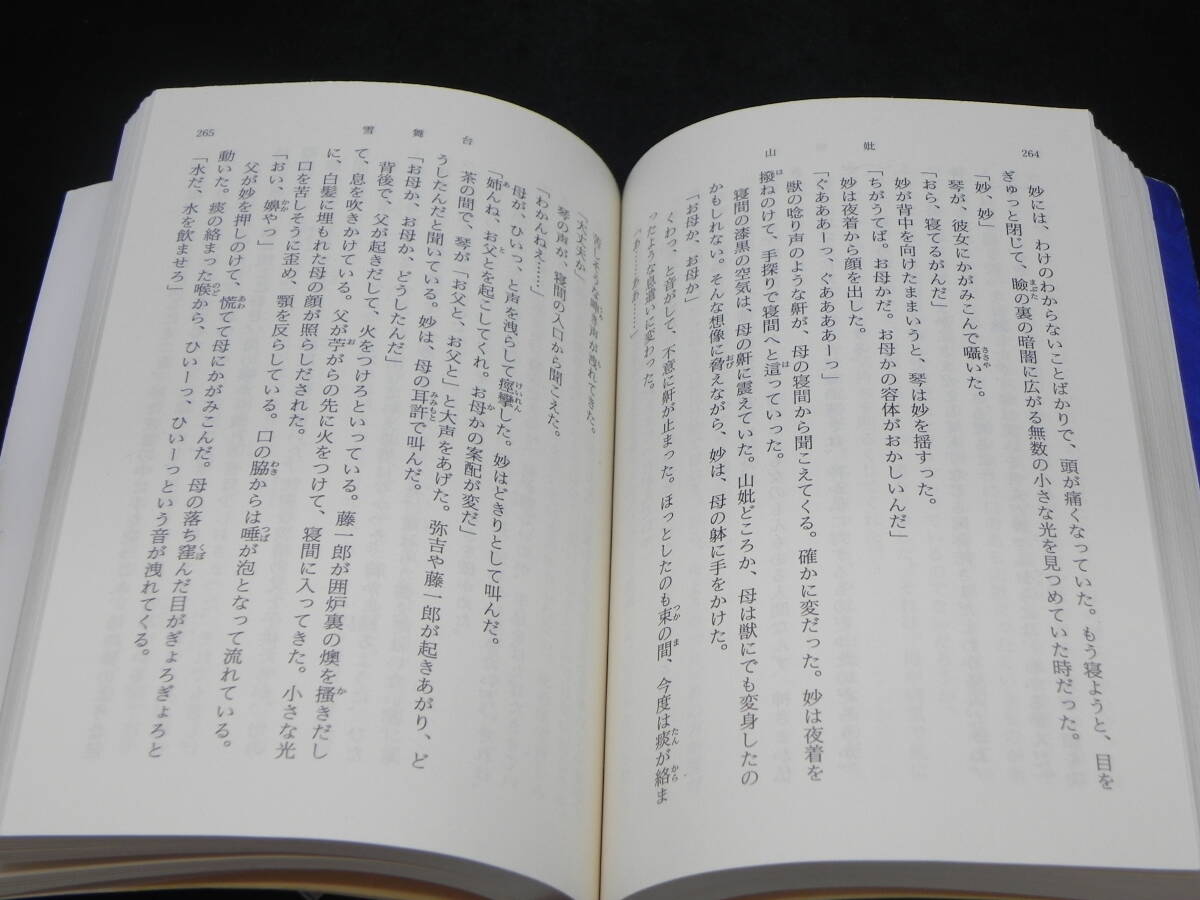 264
山妣
妙には、わけのわからないことばかりで、頭が痛くなっていた。もう寝ようと、目を
ぎゅっと閉じて、瞼の裏の暗闇に広がる無数の小さな光を見つめていた時だった。
「妙、妙」
琴が、彼女にかがみこんで囁いた。
「おら、寝てるがんだ」
妙が背中を向けたままいうと、琴は妙を揺すった。
「ちがうてば。お母かだ。お母かの容体がおかしいんだ」
妙は夜着から顔を出した。
「ぐあああーっ、ぐああああーっ」
獣の唸り声のような鼾が、母の寝間から聞こえてくる。確かに変だった。妙は夜着を
撥ねのけて、手探りで寝間へと這っていった。
寝間の漆黒の空気は、母の鼾に震えていた。山妣どころか、母は獣にでも変身したの
かもしれない。そんな想像に脅えながら、妙は、母の躰に手をかけた。
「お母か、お母か」
くわっ、と音がして、不意に鼾が止まった。ほっとしたのも束の間、今度は痰が絡ま
ったような息遣いに変わった。
「あ……ああ……」
265
雪舞台
苦しそうな呻き声が洩れてきた。
「大丈夫か」
琴の声が、寝間の入口から聞こえた。
「わかんねえ……」
母が、ひいっ、と声を洩らして痙攣した。妙はどきりとして叫んだ。
「姉んね、お父とを起こしてくれ。お母かの案配が変だ」
茶の間で、琴が「お父と、お父と」と大声をあげた。弥吉や藤一郎が起きあがり、ど
うしたんだと聞いている。妙は、母の耳許で叫んだ。
「お母か、お母か、どうしたんだ」
背後で、父が起きだして、火をつけろといっている。藤一郎が囲炉裏の燠を掻きだし
て、息を吹きかけている。父が苧がらの先に火をつけて、寝間に入ってきた。小さな光
に、白髪に埋もれた母の顔が照らしだされた。
口を苦しそうに歪め、顎を反らしている。口の脇からは唾が泡となって流れている。
「おい、嬶やっ」
父が妙を押しのけて、慌てて母にかがみこんだ。母の落ち窪んだ目がぎょろぎょろと
動いた。痰の絡まった喉から、ひいーっ、ひいーっという音が洩れてくる。
「水だ、水を飲ませろ」